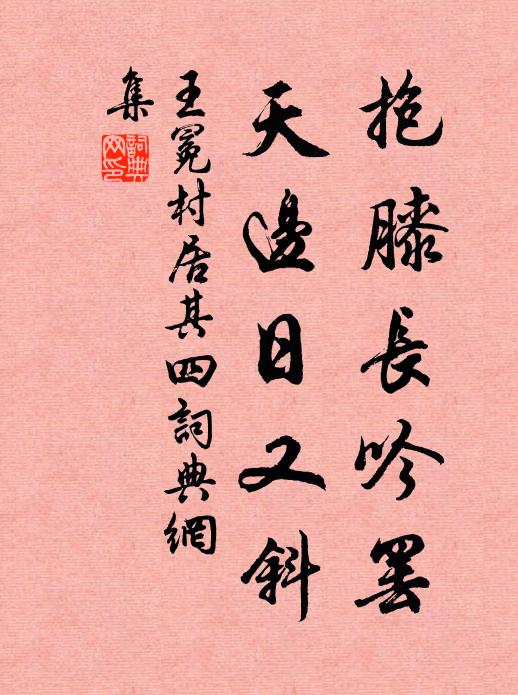 抱膝長吟罢
天邊日又斜
王冕村居其四詞典網
集
詞典
网印